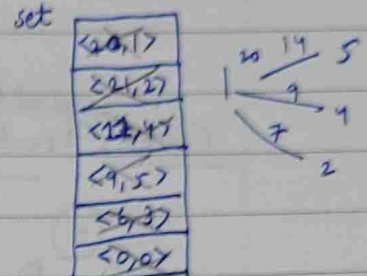 set
<20,1>
<21,2>
<11,4>
<9,5>
<6,3>
<0,0>
1
20 14 5
9 4
7
2